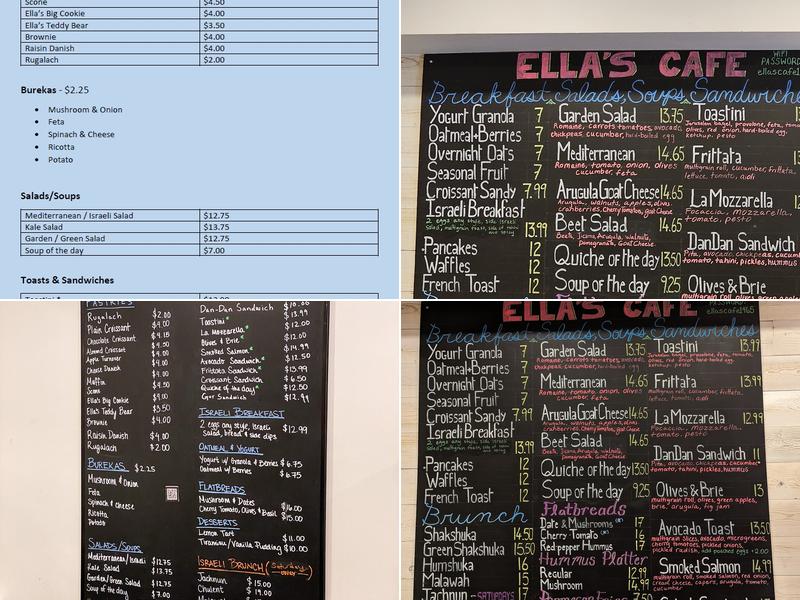 Scone $4.50
Ella's Big Cookie $4.00
Ella's Teddy Bear $3.50
Brownie $4.00
Raisin Danish $4.00
Rugalach $2.00
Burekas - $2.25
Mushroom & Onion
Feta
Spinach & Cheese
Ricotta
Potato
Salads/Soups
Mediterranean / Israeli Salad $12.75
Kale Salad $13.75
Garden / Green Salad $12.75
Soup of the day $7.00
Toasts & Sandwiches
WIFI
PASSWORD
ELLA'S CAFE
Breakfast, Salads, Soups, Sandwiches
Yogurt Granola 7
Oatmeal+Berries 7
Overnight Oats 7
Seasonal Fruit 7
Croissant Sandy 7.99
Israeli Breakfast
13.99
Pancakes 12
Waffles 12
French Toast 12
Garden Salad 13.75
Romaine, carrots tomatoes, avocado,
chickpeas, cucumber, hard-boiled egg
Mediterranean 14.65
Romaine, tomato, onion, olives
cucumber, feta
Arugula Goat Cheese 14.65
Arugula, walnuts, apples, olives
cranberries, Cherry tomatoes, Goat Cheese
Beet Salad 14.65
Beets, Jicama, Arugula, walnuts,
pomegranate, Goat Cheese
Quiche of the day 13.50
Soup of the day 9.25
Toastini
Jerusalem bagel, provolone, feta, tomato,
olives, red onion, hard-boiled egg,
ketchup, pesto
Frittata
multigrain roll, cucumber, frittata,
lettuce, tomato, aioli
La Mozzarella
Focaccia, mozzarella,
tomato, pesto
DanDan Sandwich
Pita, avocado, chickpeas, cucumber,
tomato, tahini, pickles, hummus
Olives & Brie
PASTRIES
Rugalach $2.00
Plain Croissant $4.00
Chocolate Croissant
Almond Croissant
Apple Turnover
Cheese Danish
Muffin
Scone
Ella's Big Cookie $4.00
Ella's Teddy Bear $3.50
Brownie $4.00
Raisin Danish $4.00
Rugalach $2.00
BUREKAS $2.25
Mushroom & Onion
Feta
Spinach & Cheese
Ricotta
Potato
SALADS/SOUPS
Israeli $12.75
Kale Salad $13.75
Garden/Green Salad $12.75
Soup of the day $7.00
Dan-Dan Sandwich
Toastini $13.99
La Mozzarella $12.00
Olives & Brie $12.00
Smoked Salmon $14.99
Avocado Sandwich $12.50
Frittata Sandwich $13.99
Croissant Sandwich $6.50
Quiche of the day $12.50
ISRAELI BREAKFAST
2 eggs any style, Israeli
Salad, bread & side dips $12.99
OATMEAL & YOGURT
Yogurt w/ Granola & Berries $6.75
Oatmeal w/ Berries $6.75
FLATBREADS
Mushroom & Dates $16.00
Cherry Tomato, Olives & Basil $15.00
DESSERTS
Lemon Tart $11.00
Tiramisu/Vanilla Pudding $10.00
ISRAELI BRUNCH (Saturday only)
Jachnun $15.00
Chulent $19.00
ELLA'S CAFE
Breakfast, Salads, Soups, Sandwiches
Yogurt Granola 7
Oatmeal+Berries 7
Overnight Oats 7
Seasonal Fruit 7
Croissant Sandy 7.99
Israeli Breakfast
13.99
Pancakes 12
Waffles 12
French Toast 12
Brunch
Shakshuka 14.50
Green Shakshuka 15.50
Humshuka 16
Malawah 15
Jachnun - SATURDAYS 17
Garden Salad 13.75
Romaine, carrots tomatoes, avocado,
chickpeas, cucumber, hard-boiled egg
Mediterranean 14.65
Romaine, tomato, onion, olives
cucumber, feta
Arugula Goat Cheese 14.65
Beet Salad 14.65
Quiche of the day 13.50
Soup of the day 9.25
Flatbreads
Date & Mushrooms 17
Cherry Tomato 16
Red pepper Hummus 17
Hummus Platter
Regular 12.99
Mushroom 14.99
Toastini 13.99
Frittata 13.99
multigrain roll, cucumber, frittata,
lettuce, tomato, aioli
La Mozzarella 12.99
Focaccia, mozzarella,
tomato, pesto
DanDan Sandwich 11
Pita, avocado, chickpeas, cucumber
tomato, tahini, pickles, hummus
Olives & Brie 13
multigrain roll, olives, green apples,
brie, arugula, fig jam
Avocado Toast 13.50
multigrain slices, avocado, microgreens,
cherry tomatoes, pickled onions,
pickled radish, add poached eggs +2.00
Smoked Salmon 14.99
multigrain roll, smoked salmon, red onion,
cream cheese, capers, arugula, tomato,
cucumber